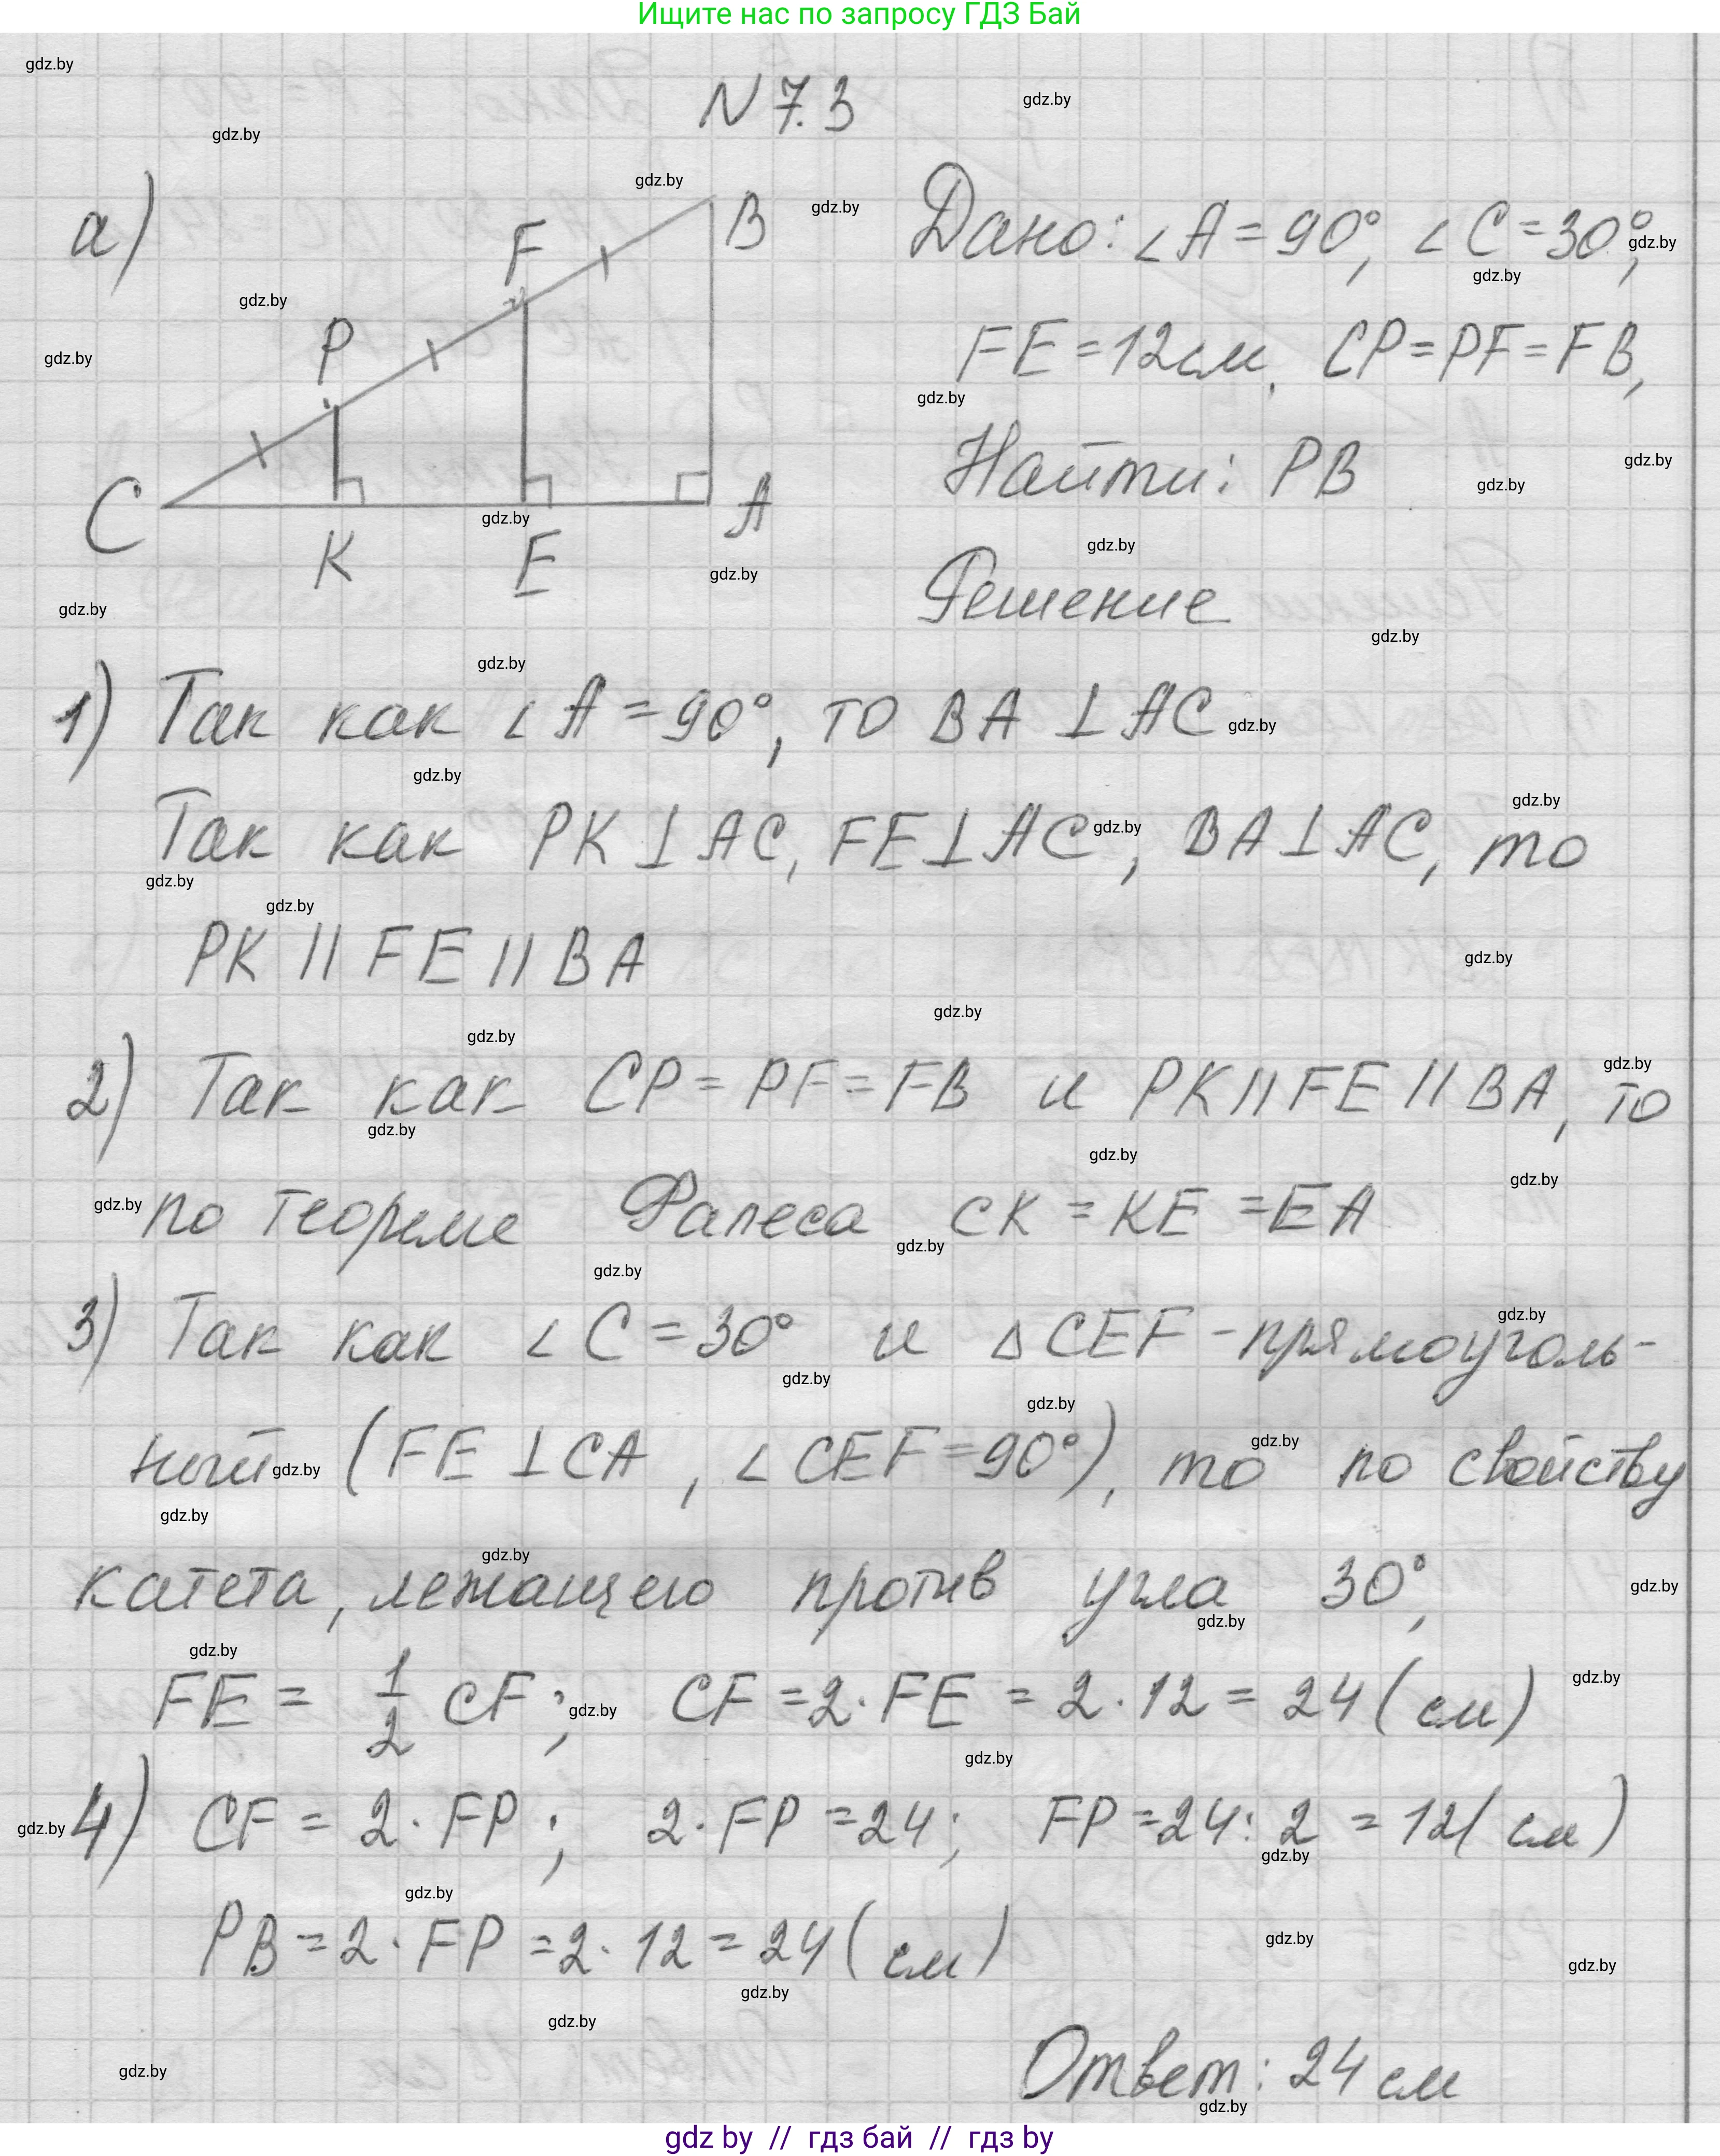 Ищите нас по запросу ГДЗ Бай
N 7.3
а)
C P F B K E A
Дано: ∠A = 90°, ∠C = 30°,
FE = 12 см, CP = PF = FB,
Найти: PB
Решение
1) Так как ∠A = 90°, то BA ⊥ AC
Так как PK ⊥ AC, FE ⊥ AC, BA ⊥ AC, то
PK || FE || BA
2) Так как CP = PF = FB и PK || FE || BA, то
по теореме Фалеса CK = KE = EA
3) Так как ∠C = 30° и △CEF - прямоуголь-
ный (FE ⊥ CA, ∠CEF = 90°), то по свойству
катета, лежащего против угла 30°,
FE = 1/2 CF; CF = 2 · FE = 2 · 12 = 24 (см)
4) CF = 2 · FP; 2 · FP = 24; FP = 24 : 2 = 12 (см)
PB = 2 · FP = 2 · 12 = 24 (см)
Ответ: 24 см
gdz by // гдз бай // гдз by